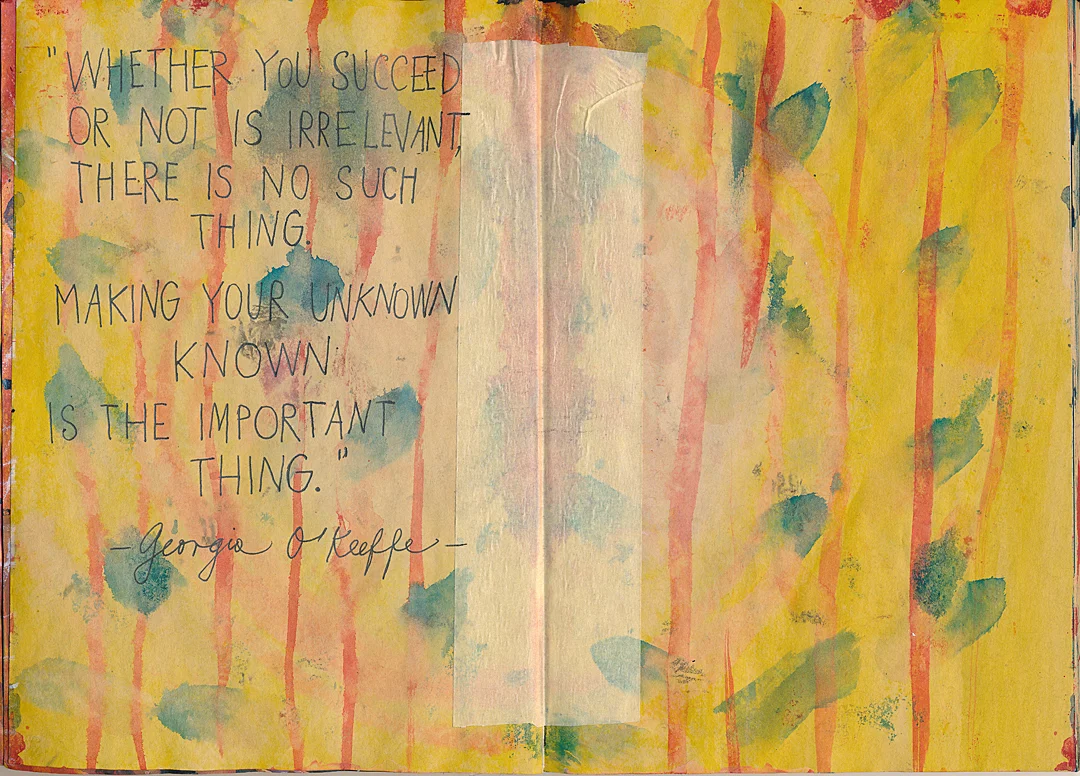 "WHETHER YOU SUCCEED
OR NOT IS IRRELEVANT,
THERE IS NO SUCH
THING.
MAKING YOUR UNKNOWN
KNOWN
IS THE IMPORTANT
THING."
- Georgia O'Keeffe -